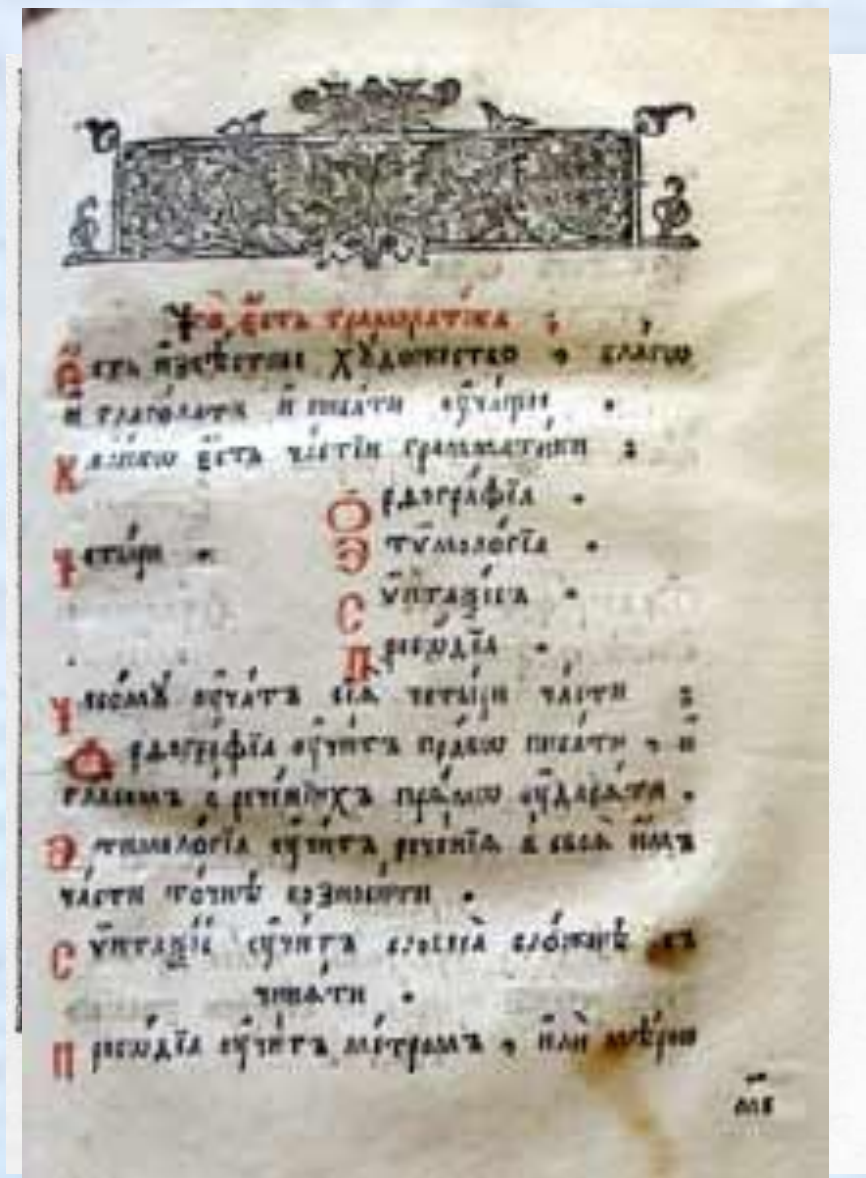 Что̀ є҆́сть грамма́тїка ;
Є҆́сть и҆звѣ́стное хꙋдо́жество , бла́гѡ
и҆ глаго́лати и҆ писа́ти ᲂу҆ча́щее .
Коли́кѡ є҆́сть ча́стїи грамма́тїки ;
Ѻ҆рѳогра́фїа .
Четы́ри . Э҆тѷмоло́гїа .
Сѷ́нтаѯїсъ .
Просѡ́дїа .
Чесомꙋ̀ ᲂу҆ча́тъ сїѧ̑ четы́ри ча̑сти ;
Ѻ҆рѳогра́фїа ᲂу҆чи́тъ пра́вѡ писа́ти , и҆
гла́сомъ в̾ рече́нїихъ прѧ́мѡ ᲂу҆дарѧ́ти .
Э҆тимоло́гїа ᲂу҆чи́тъ рече́нїѧ в̾ своѧ̑ и҆̀мъ
ча̑сти то́чнѣ возноси́ти .
Сѷ́нтаѯїсъ ᲂу҆чи́тъ словеса̀ сло́жнѣ со
чинѧ́ти .
Просѡ́дїа ᲂу҆чи́тъ ме́тромъ , и҆лѝ мѣ́рою